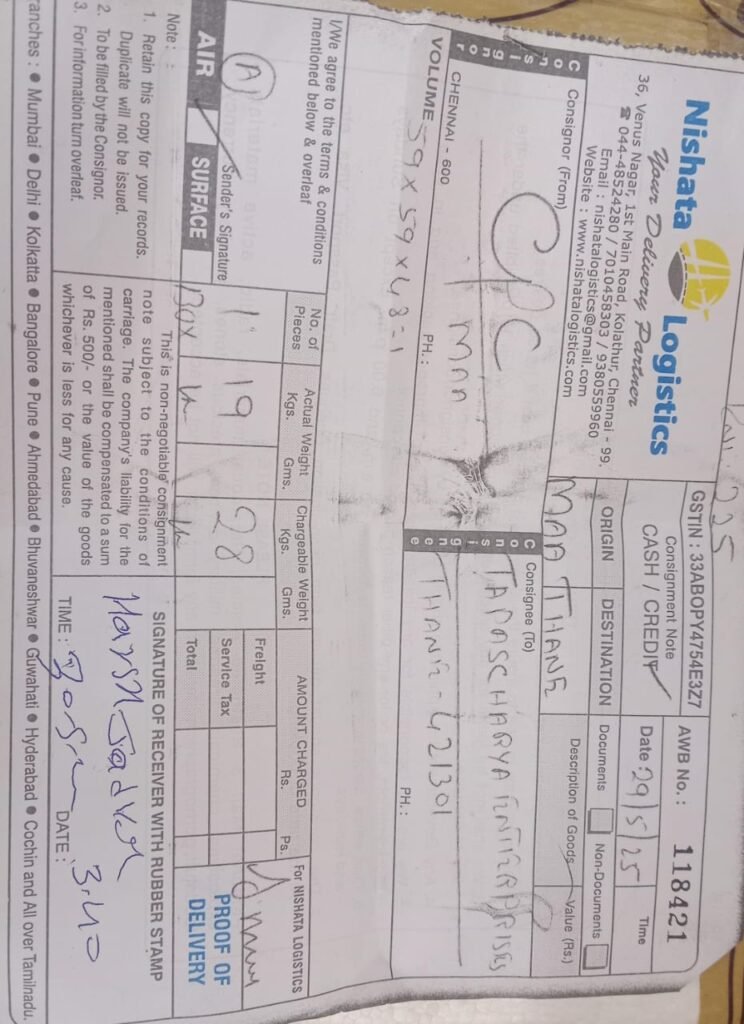 Nishata Logistics
Your Delivery Partner
36, Venus Nagar, 1st Main Road, Kolathur, Chennai - 99.
☎ 044-48524280 / 7010458303 / 9380559960
Email : nishatalogistics@gmail.com
Website : www.nishatalogistics.com
GSTIN : 33ABOPY4754E3Z7
Consignment Note
CASH / CREDIT
AWB No. : 118421
Date : 29/5/25
Time
ORIGIN
DESTINATION
MAA THANE
Documents
Non-Documents
Description of Goods
Value (Rs.)
Consignor
Consignor (From)
CPC
MAA
CHENNAI - 600
PH. :
VOLUME 59x59x48=1
Consignee
Consignee (To)
TAPASCHARYA ENTERPRISES
THANE - 421301
PH. :
I/We agree to the terms & conditions
mentioned below & overleaf
A
Sender's Signature
AIR
SURFACE
No. of Pieces
Actual Weight
Kgs. Gms.
Chargeable Weight
Kgs. Gms.
1 19 28
Box
AMOUNT CHARGED
Rs. Ps.
Freight
Service Tax
Total
For NISHATA LOGISTICS
PROOF OF
DELIVERY
Note :
1. Retain this copy for your records.
Duplicate will not be issued.
2. To be filled by the Consignor.
3. For information turn overleaf.
This is non-negotiable consignment
note subject to the conditions of
carriage. The company's liability for the
mentioned shall be compensated to a sum
of Rs. 500/- or the value of the goods
whichever is less for any cause.
SIGNATURE OF RECEIVER WITH RUBBER STAMP
Harsh Jadhav
3.40
TIME :
DATE :
ranches : ● Mumbai ● Delhi ● Kolkatta ● Bangalore ● Pune ● Ahmedabad ● Bhuvaneshwar ● Guwahati ● Hyderabad ● Cochin and All over Tamilnadu.